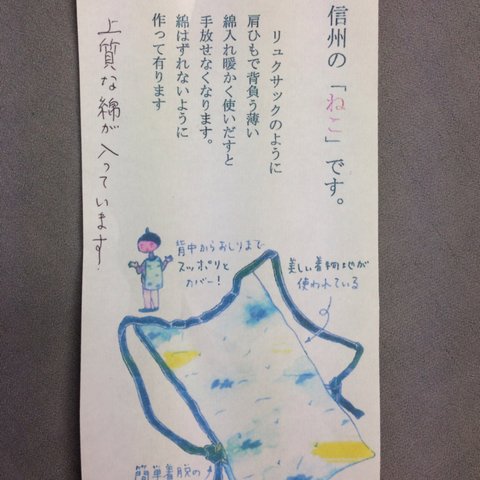 信州の「ねこ」です。
リュクサックのように
肩ひもで背負う薄い
綿入れ暖かく使いだすと
手放せなくなります。
綿はずれないように
作って有ります
上質な綿が入っています
背中からおしりまで
スッポリと
カバー!
美しい着物地が
使われている
簡単着脱の